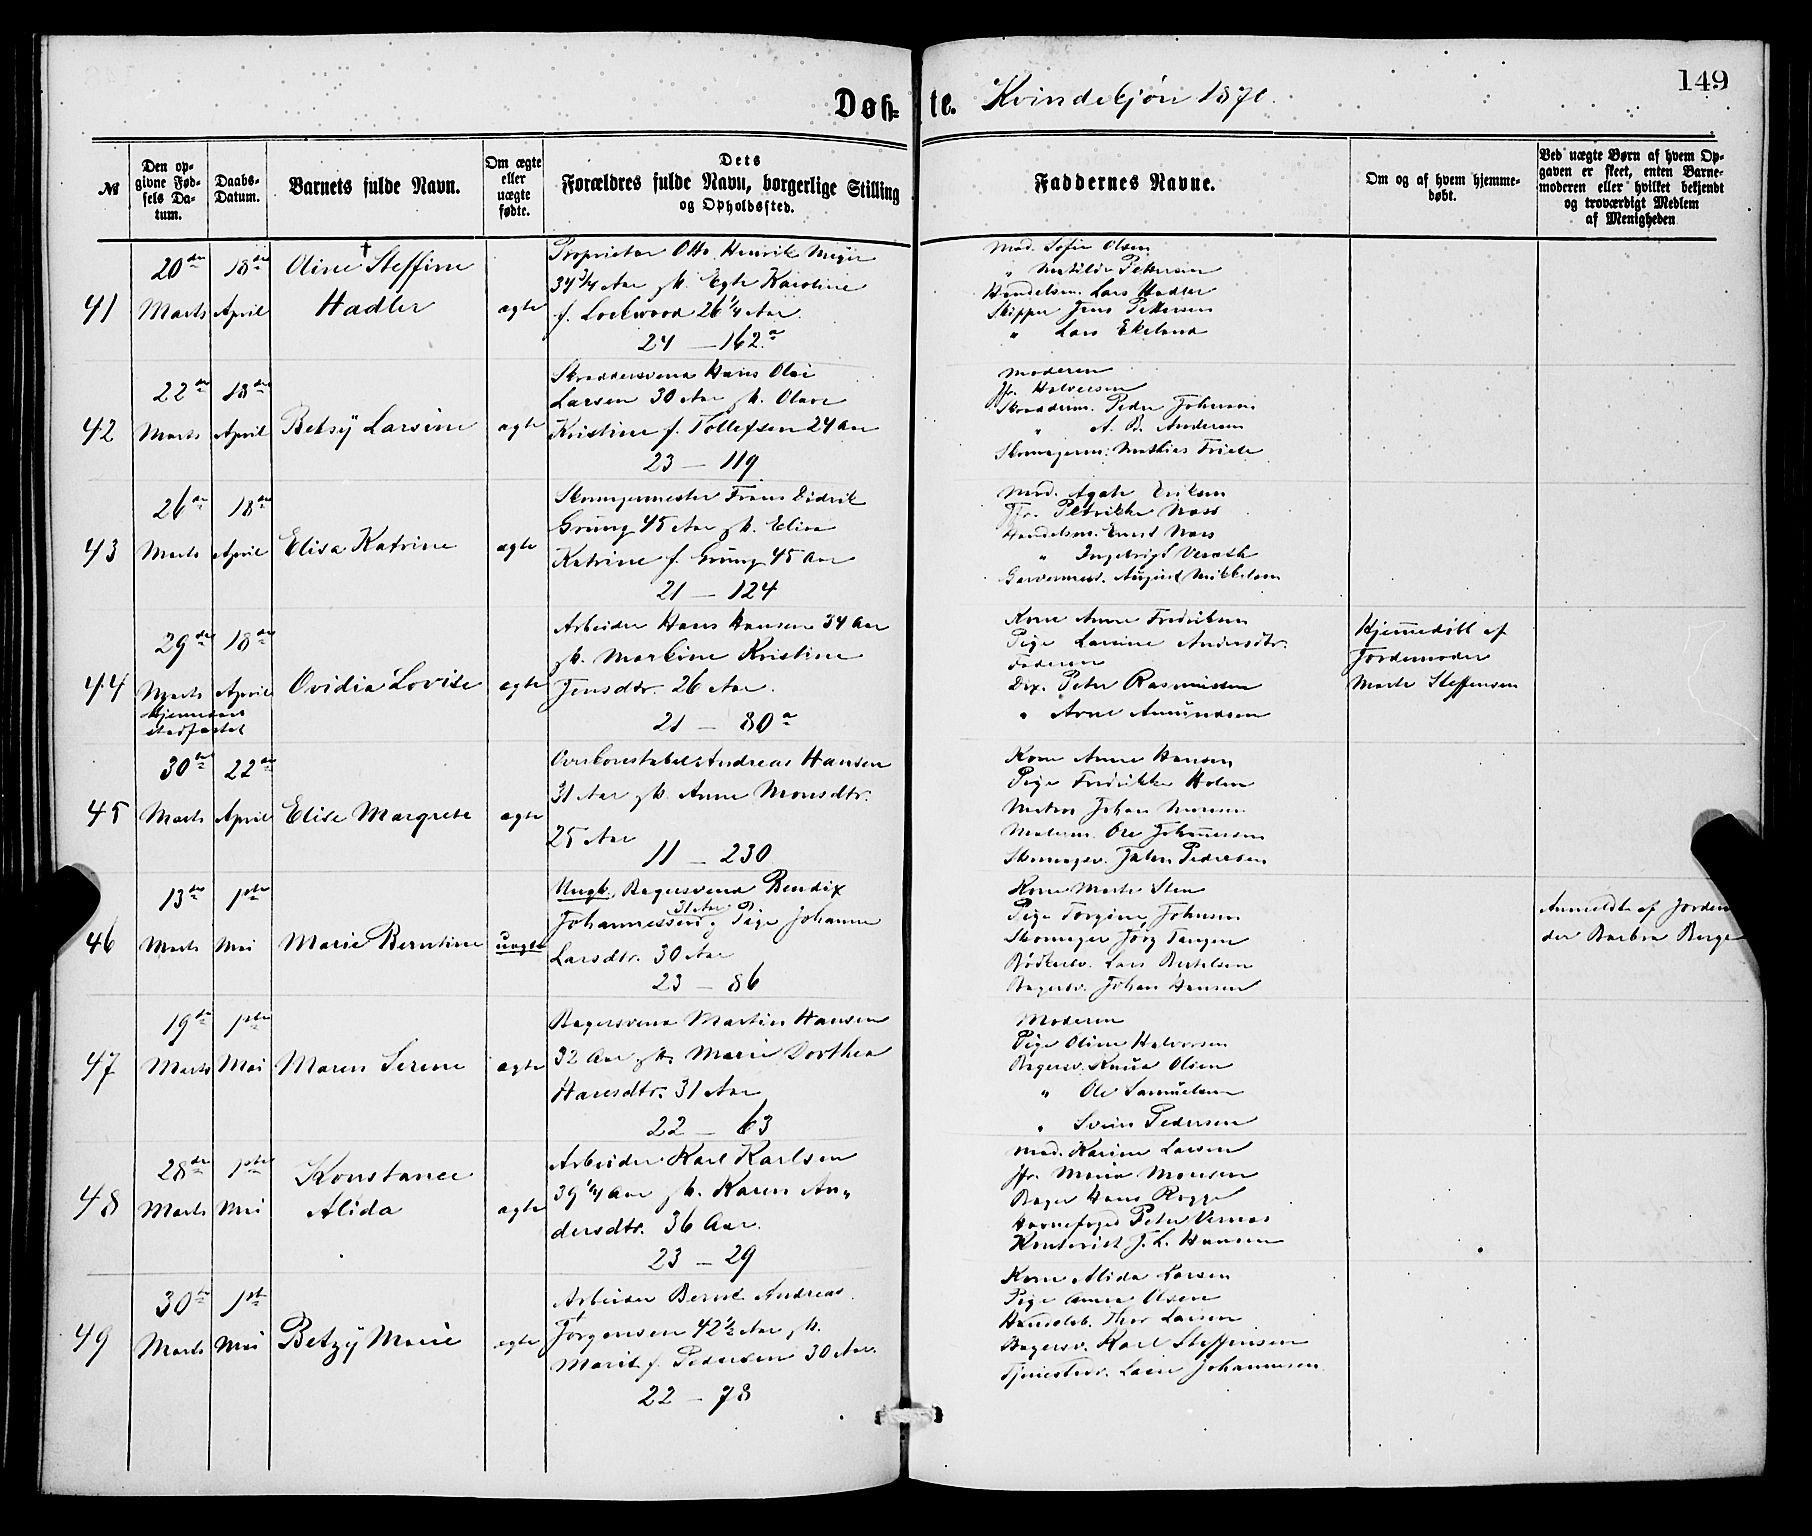 149
Døbte. Kvindekjøn 1870.
№
Den opgivne Fødsels Datum.
Daabs-Datum.
Barnets fulde Navn.
Om ægte eller uægte fødte.
Dets Forældres fulde Navn, borgerlige Stilling og Opholdssted.
Faddernes Navne.
Om og af hvem hjemmedøbt.
Ved uægte Børn af hvem Opgaven er skeet, enten Barnemoderen eller hvilket bekjendt og troværdigt Medlem af Menigheden
41
20de Marts
18de April
Oline Steffine †
Hadler
ægte
Proprietær Otto Henrik Meyer
34 3/4 Aar og h. Egte Karoline
f. Lockwood 26 1/4 Aar.
24 — 162.a
Mad. Sofie Olsen
" Matilde Pettersen
Handelsm. Lars Hadler
Skipper Jens Pettersen
" Lars Ekeland
42
22de Marts
18de April
Betsÿ Larsine
ægte
Skræddersvend Hans Olai
Larsen 30 Aar og h. Olave
Kristine f. Tollefsen 24 Aar
23 — 119
Moderen
Jfr. Halvorsen
Skrædderm. Peder Johnsen
" A. B. Andersen
Skomagerm. Mathias Friele
43
26de Marts
18de April
Elisa Katrine
ægte
Skomagermester Frans Didrik
Grung 45 Aar og h. Elisa
Katrine f. Grung 45 Aar
21 — 124
Mad. Agate Eriksen
Jfr. Petrikke Næss
Handelsm. Ernst Næss
" Ingebrigt
Garvermest. August Mikkelsen
44
29de Marts
18de April
Hjemmed. stadfæstet
Ovidia Lovise
ægte
Arbeider Hans Hansen 34 Aar
og h. Markine Kristine
Jensdtr. 26 Aar.
21 — 80a
Kone Anne Fredriksen
Pige Larsine Andersdtr.
Faderen
Peter Rasmussen
" Arne Amundsen
Hjemmedøbt af
Jordemoder
Marte Steffensen
45
30de Marts
22de April
Elise Margrete
ægte
Overkonstabel Andreas Hansen
31 Aar og h. Anne Monsdtr.
25 Aar
11 — 230
Kone Anne Hansen
Pige Fredrikke Holm
Matros Johan Monsen
Malerm. Ole Johnnesen
Skomagsv. Johan Pedersen
46
13de Marts
1ste Mai
Marie Berntine
uægte
Ungk. Bagersvend Bendix
Johannessen 31 Aar og Pige Johanne
Larsdtr. 30 Aar
23 — 86
Kone Marte Sten
Pige Torgine Johnsen
Skomager Jørg Tangen
Bødkersv. Lars Bertelsen
Bagersv. Johan Hansen
Anmeldt af Jordemo
der Barbra Berge
47
19de Marts
1ste Mai
Maren Serine
ægte
Bagersvend Martin Hansen
32 Aar og h. Marie Dorthea
Hansdtr. 31 Aar
22 — 63
Moderen
Pige Oline Halvorsen
Bagersv. Knud Olsen
" Ole Samuelsen
" Svein Pedersen
48
28de Marts
1ste Mai
Konstance
Alida
ægte
Arbeider Karl Karlsen
39 1/4 Aar og h. Karen An„
dersdtr. 36 Aar.
23 — 29
Mad. Karine Larsen
Jfr. Maria Monsen
Bager Hans Rogge
Havnefoged Peter
Kontorist J. L. Hansen
49
30te Marts
1ste Mai
Betzÿ Marie
ægte
Arbeider Bernt Andreas
Jørgensen 42 1/2 Aar og h.
Marit f. Pedersen 30 Aar.
22 — 78
Kone Alida Larsen
Pige Anna Olsen
Handelsb. Thor Larsen
Bagersv. Karl Steffensen
Tjenestedr. Lars Johannesen